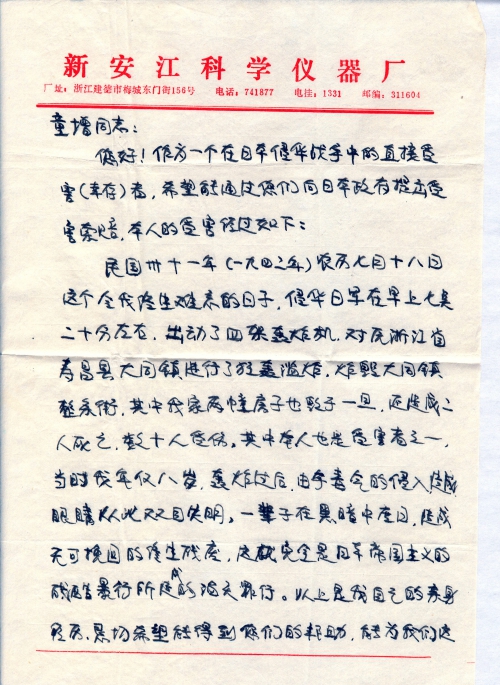 新安江科学仪器厂
厂址：浙江建德市梅城东门街156号 电话：741877 电挂：1331 邮编：311604
童增同志：
您好！作为一个在日本侵华战争中的直接受
害(幸存)者，希望能通过你们向日本政府提出受
害索赔，本人的受害经过如下：
民国卅十一年(一九四二年)农历七月十八日
这个令我终生难忘的日子，侵华日军在早上七点
二十分左右，出动了四架轰炸机，对原浙江省
寿昌县大同镇进行了狂轰滥炸，炸毁大同镇
整条街，其中我家两幢房子也毁于一旦，还造成二
人死亡，数十人受伤。其中本人也是受害者之一，
当时我年仅八岁，轰炸过后，由于毒气的侵入造成
眼睛从此双目失明，一辈子在黑暗中度日，造成
无可挽回的终生残废，这就完全是日军帝国主义的
残酷暴行所造成的滔天罪行。以上是我自己的亲身
经历，恳切希望能得到你们的帮助，能为我们这